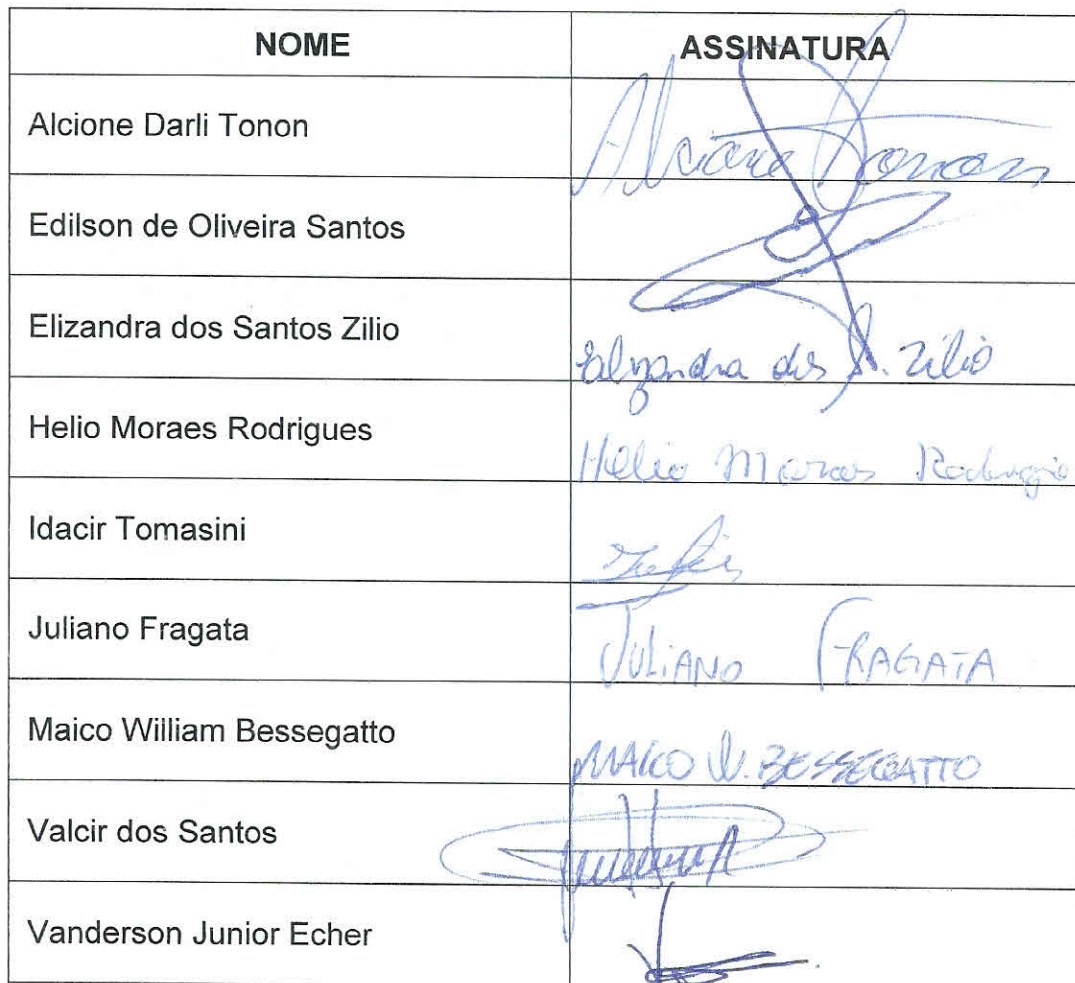 NOME ASSINATURA
Alcione Darli Tonon Alcione Tonon
Edilson de Oliveira Santos
Elizandra dos Santos Zilio Elizandra dos S. Zilio
Helio Moraes Rodrigues Helio Moraes
Idacir Tomasini
Juliano Fragata JULIANO FRAGATA
Maico William Bessegatto MAICO W. BESSEGATTO
Valcir dos Santos
Vanderson Junior Echer